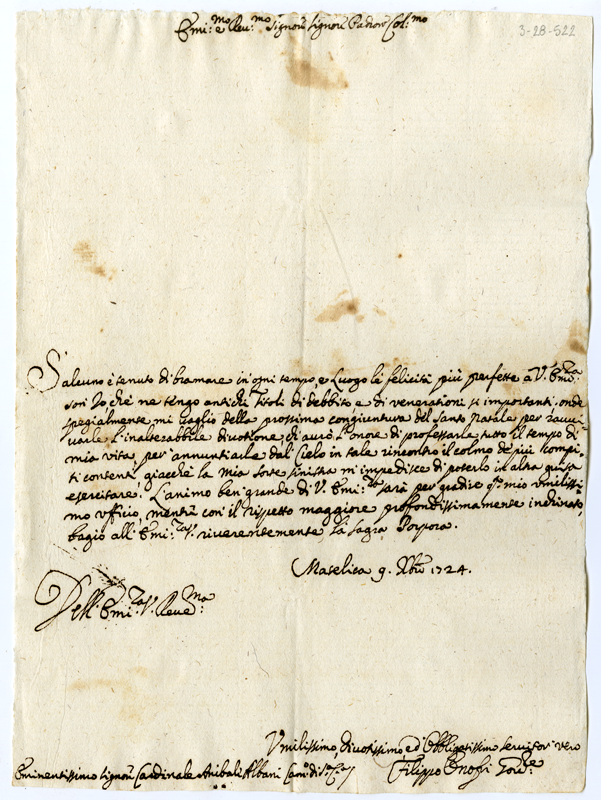 Emi:mo e Rev:mo Signore Signore Padron Col:mo
3-28-522
S'alcuno è tenuto di bramare in ogni tempo, e Luogo le felicità più perfette à V. Emi:za
son Io che ne tengo antichi Titoli di debbito e di venerationi sì importanti. onde
spezialmente mi vaglio della prossima congiuntura del Santo Natale per ravvi
varle l'inalterabbile divotione, ch'avrò l'onore di professarle tutto il tempo di
mia vita per annuntiarle dal Cielo in tale rincontro il colmo de più compi-
ti contenti, giacchè la mia sorte sinistra mi impedisce di poterlo in altra guisa
esercitare. L'animo ben grande di V. Emi:za sarà per gradire q.to mio umilissi
mo ufficio, mentre con il rispetto maggiore profondissimamente inchinato,
bagio all'Emi:za V. riverentemente la Sagra Porpora.
Matelica 9. Xbre 1724.
Dell'Emi:za V. Reve:ma
Umilissimo, divotissimo ed Obbligatissimo servitore vero
Eminentissimo Signore Cardinale Anibale Albani Cam:o di S:a C:a
Filippo